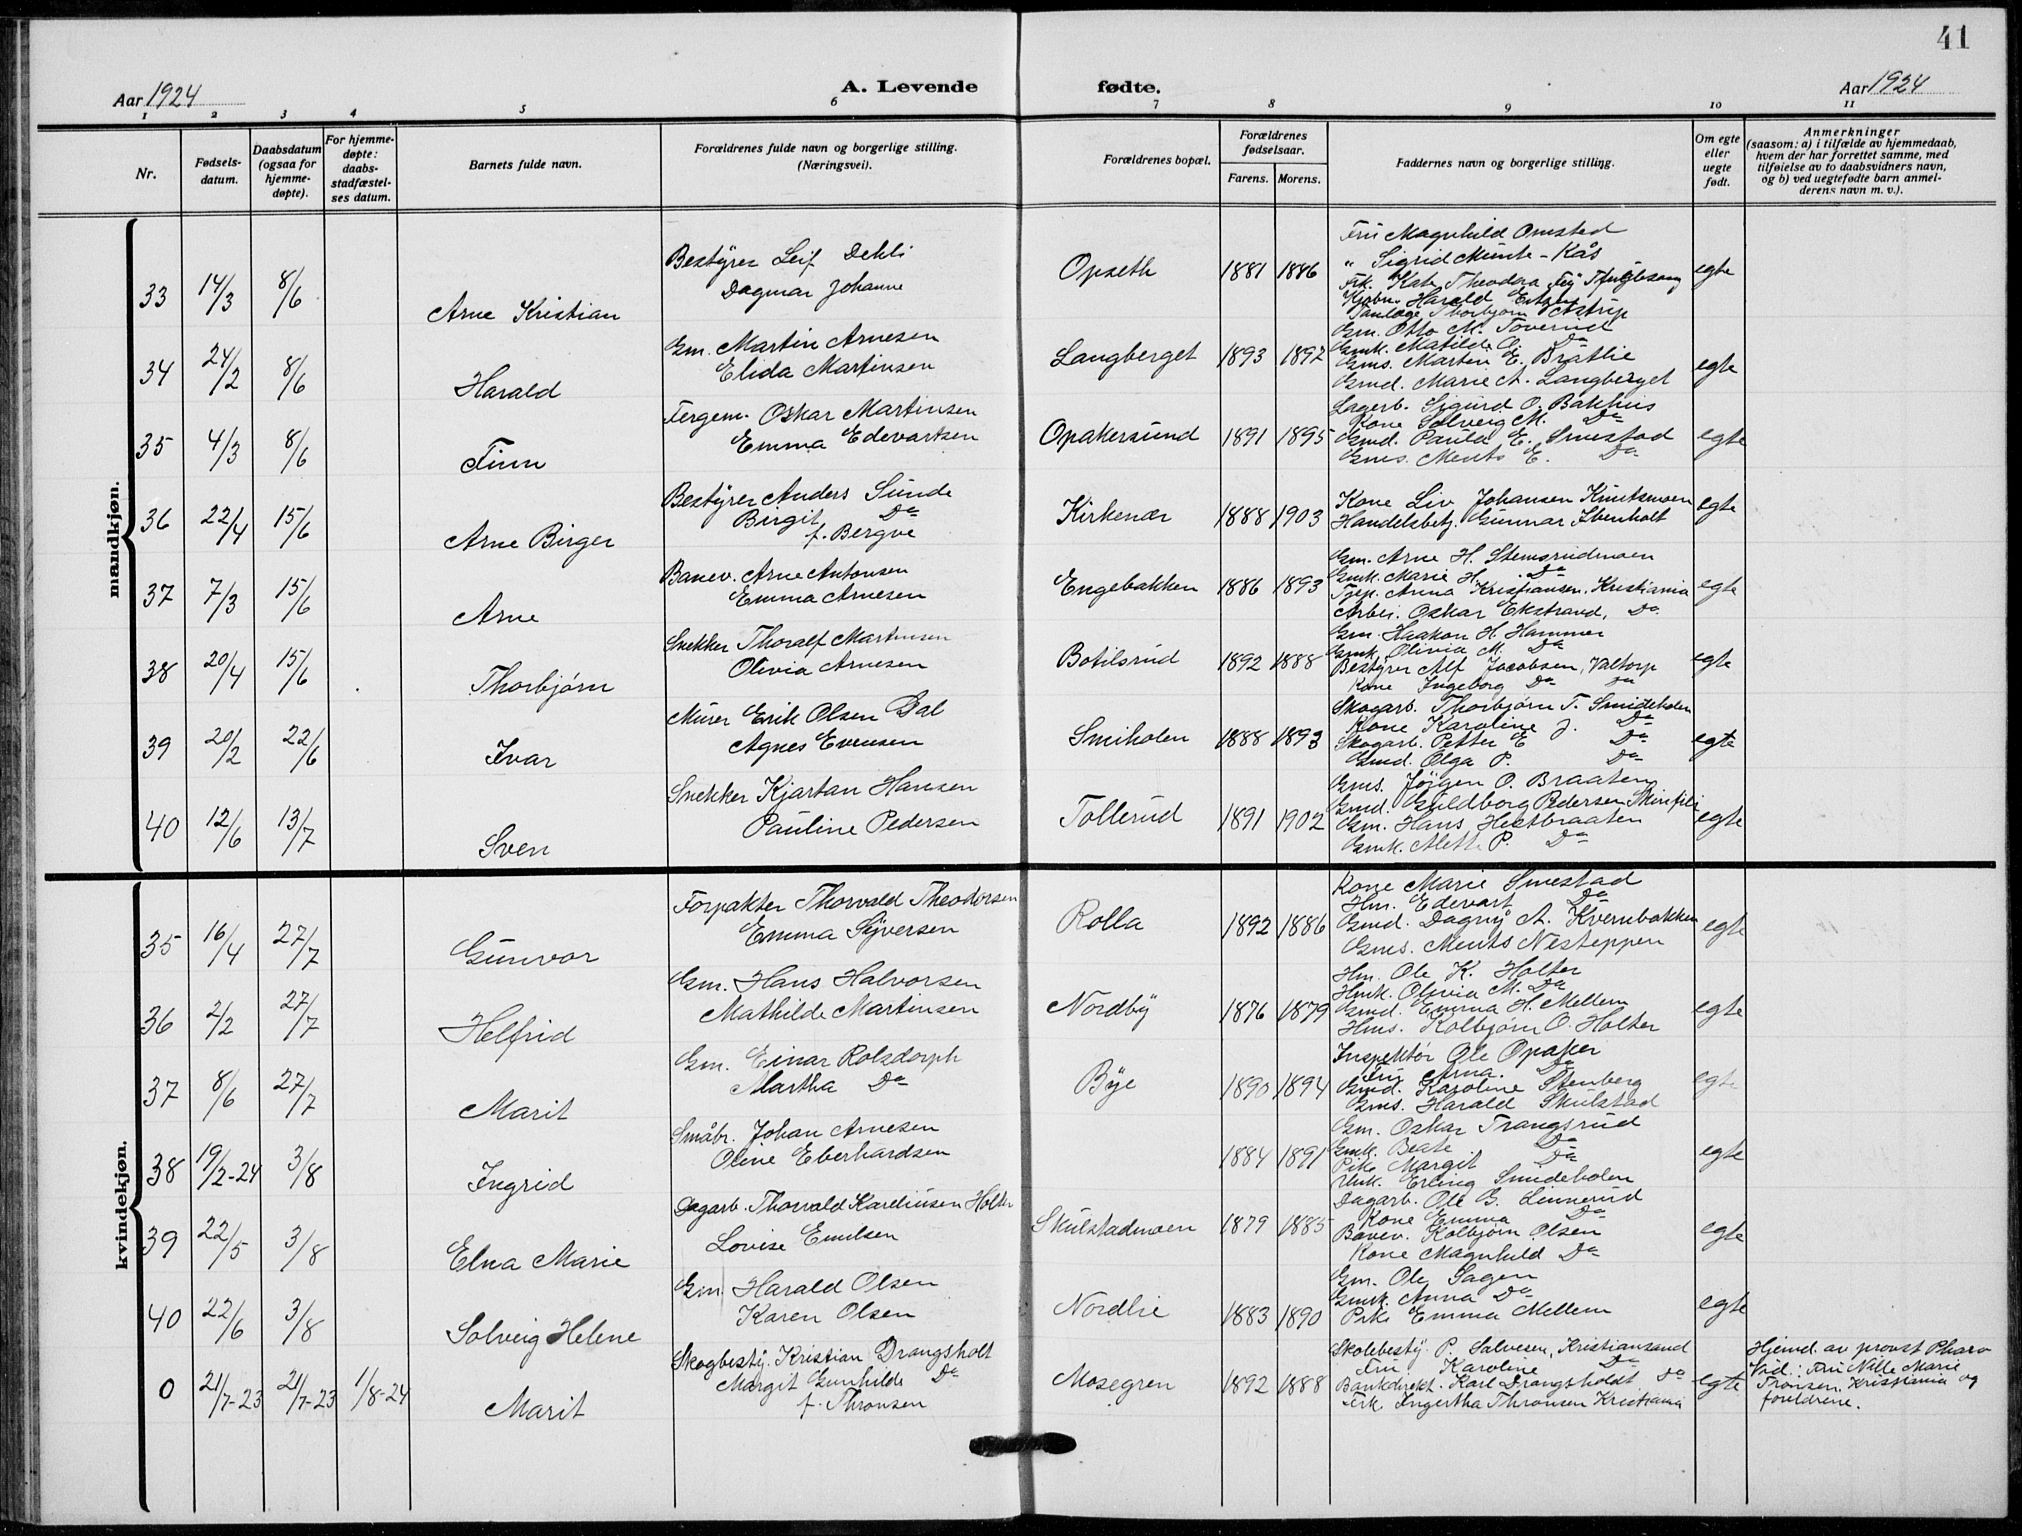 41
Aar 1924
A. Levende fødte.
Aar 1924
1 2 3 4 5 6 7 8 9 10 11
Nr.
Fødsels-
datum.
Daabsdatum
(ogsaa for
hjemme-
døpte).
For hjemme-
døpte:
daabs-
stadfæstel-
ses datum.
Barnets fulde navn.
Forældrenes fulde navn og borgerlige stilling.
(Næringsvei).
Forældrenes bopæl.
Forældrenes
fødselsaar.
Farens. Morens.
Faddernes navn og borgerlige stilling.
Om egte
eller
uegte
født.
Anmerkninger
(saasom: a) i tilfælde av hjemmedaab,
hvem der har forrettet samme, med
tilføielse av to daabsvidners navn,
og b) ved uegtefødte barn anmel-
derens navn m. v.).
mandkjøn.
33 14/3 8/6 Arne Kristian
Bestyrer Leif Dehli
Dagmar Johanne
Opseth 1881 1886
Fru Magnhild Omstad
" Sigrid Munte-Kås
Frk. Kate Theodora
Kjøbm. Harald
Thorbjørn Astrup
egte
34 24/2 8/6 Harald
Gm. Martin Arnesen
Elida Martinsen
Langberget 1893 1892
Gm. Otto M. Toverud
Gmk. Matilde O. Do
Gms. Martin E. Bratlie
Gmd. Marie A. Langberget
egte
35 4/3 8/6 Finn
Fergem. Oskar Martinsen
Emma Edevartsen
Opakersund 1891 1895
Lagerb. Sigurd O. Bakhus
Kone Solveig M. Do
Gmd. Paula E. Smestad
Gms. Ments E. Do
egte
36 22/4 15/6 Arne Birger
Bestyrer Anders Sunde
Birgit Do
f. Bergve
Kirkenær 1888 1903
Kone Liv Johansen Knutsmoen
Handelsbetj. Gunnar Ibenholt
egte
37 7/3 15/6 Arne
Banev. Arne Antonsen
Emma Arnesen
Engebakken 1886 1893
Gm. Arne H. Stemsrudmoen
Gmk. Marie H. Do
Anna Kristiansen, Kristiania
Arbei. Oskar Ekstrand, Do
egte
38 20/4 15/6 Thorbjørn
Snekker Thoralf Martinsen
Olivia Arnesen
Botilsrud 1892 1888
Gm. Haakon H. Hammer
Gmk. Olivia M. Do
Bestyrer Alf Jacobsen, Valtorp
Kone Ingeborg Do Do
egte
39 20/2 22/6 Ivar
Murer Erik Olsen Dal
Agnes Evensen
Smiholen 1888 1893
Skogarb. Thorbjørn T. Smideholen
Kone Karoline J. Do
Skogarb. Petter E Do
Gmd. Olga P. Do
egte
40 12/6 13/7 Sven
Snekker Kjartan Hansen
Pauline Pedersen
Tollerud 1891 1902
Gms. Jørgen O. Braaten
Gmd. Guldborg Pedersen Skinfili
Gm. Hans Hestbraaten
Gmk. Alette P. Do
egte
kvindekjøn.
35 16/4 27/7 Gunvor
Forpakter Thorvald Theodorsen
Emma Syversen
Rolla 1892 1886
Kone Marie Smestad
Hm. Edevart Do
Gmd. Dagny A. Kvernbakken
Gms. Ments Nesteppen
egte
36 2/2 27/7 Helfrid
Gm. Hans Halvorsen
Mathilde Martinsen
Nordby 1876 1879
Hm. Ole K. Holter
Hmk. Olivia M. Do
Gmd. Emma H. Mellem
Hms. Kolbjørn O. Holter
egte
37 8/6 27/7 Marit
Gm. Einar Rolsdorph
Martha Do
Bye 1890 1894
Inspektør Ole Opaker
Fru Anna. Do
Gmd. Karoline Stenberg
Gms. Harald Skulstad
egte
38 19/2-24 3/8 Ingrid
Småbr. Johan Arnesen
Oline Eberhardsen
1884 1891
Gm. Oskar Trangsrud
Gmk. Beate Do
Pike Margit Do
Unk. Erling Smideholen
egte
39 22/5 3/8 Elna Marie
Dagarb. Thorvald Kareliusen Holter
Lovise Emilsen
Skulstadmoen 1879 1885
Dagarb. Ole G. Linnerud
Kone Emma Do
Banev. Kolbjørn Olsen
Kone Magnhild Do
egte
40 22/6 3/8 Solveig Helene
Gm. Harald Olsen
Karen Olsen
Nordlie 1883 1890
Gm. Ole Sagen
Gmk. Anna Do
Pike Emma Mellem
egte
0 21/7-23 21/7-23 1/8-24 Marit
Skogbesty. Kristian Drangsholt
Margit Gunhilde Do
f. Thronsen
Mosegren 1892 1888
Skolebesty. P. Salvesen, Kristiansand
Fru Karoline Do
Bankdirekt. Karl Drangsholdt Do
Frk. Ingertha Thronsen Kristiania
egte
Hjemd. av provst Pharo
Vid.: Fru Nille Marie
Tronsen, Kristiania og
foreldrene.